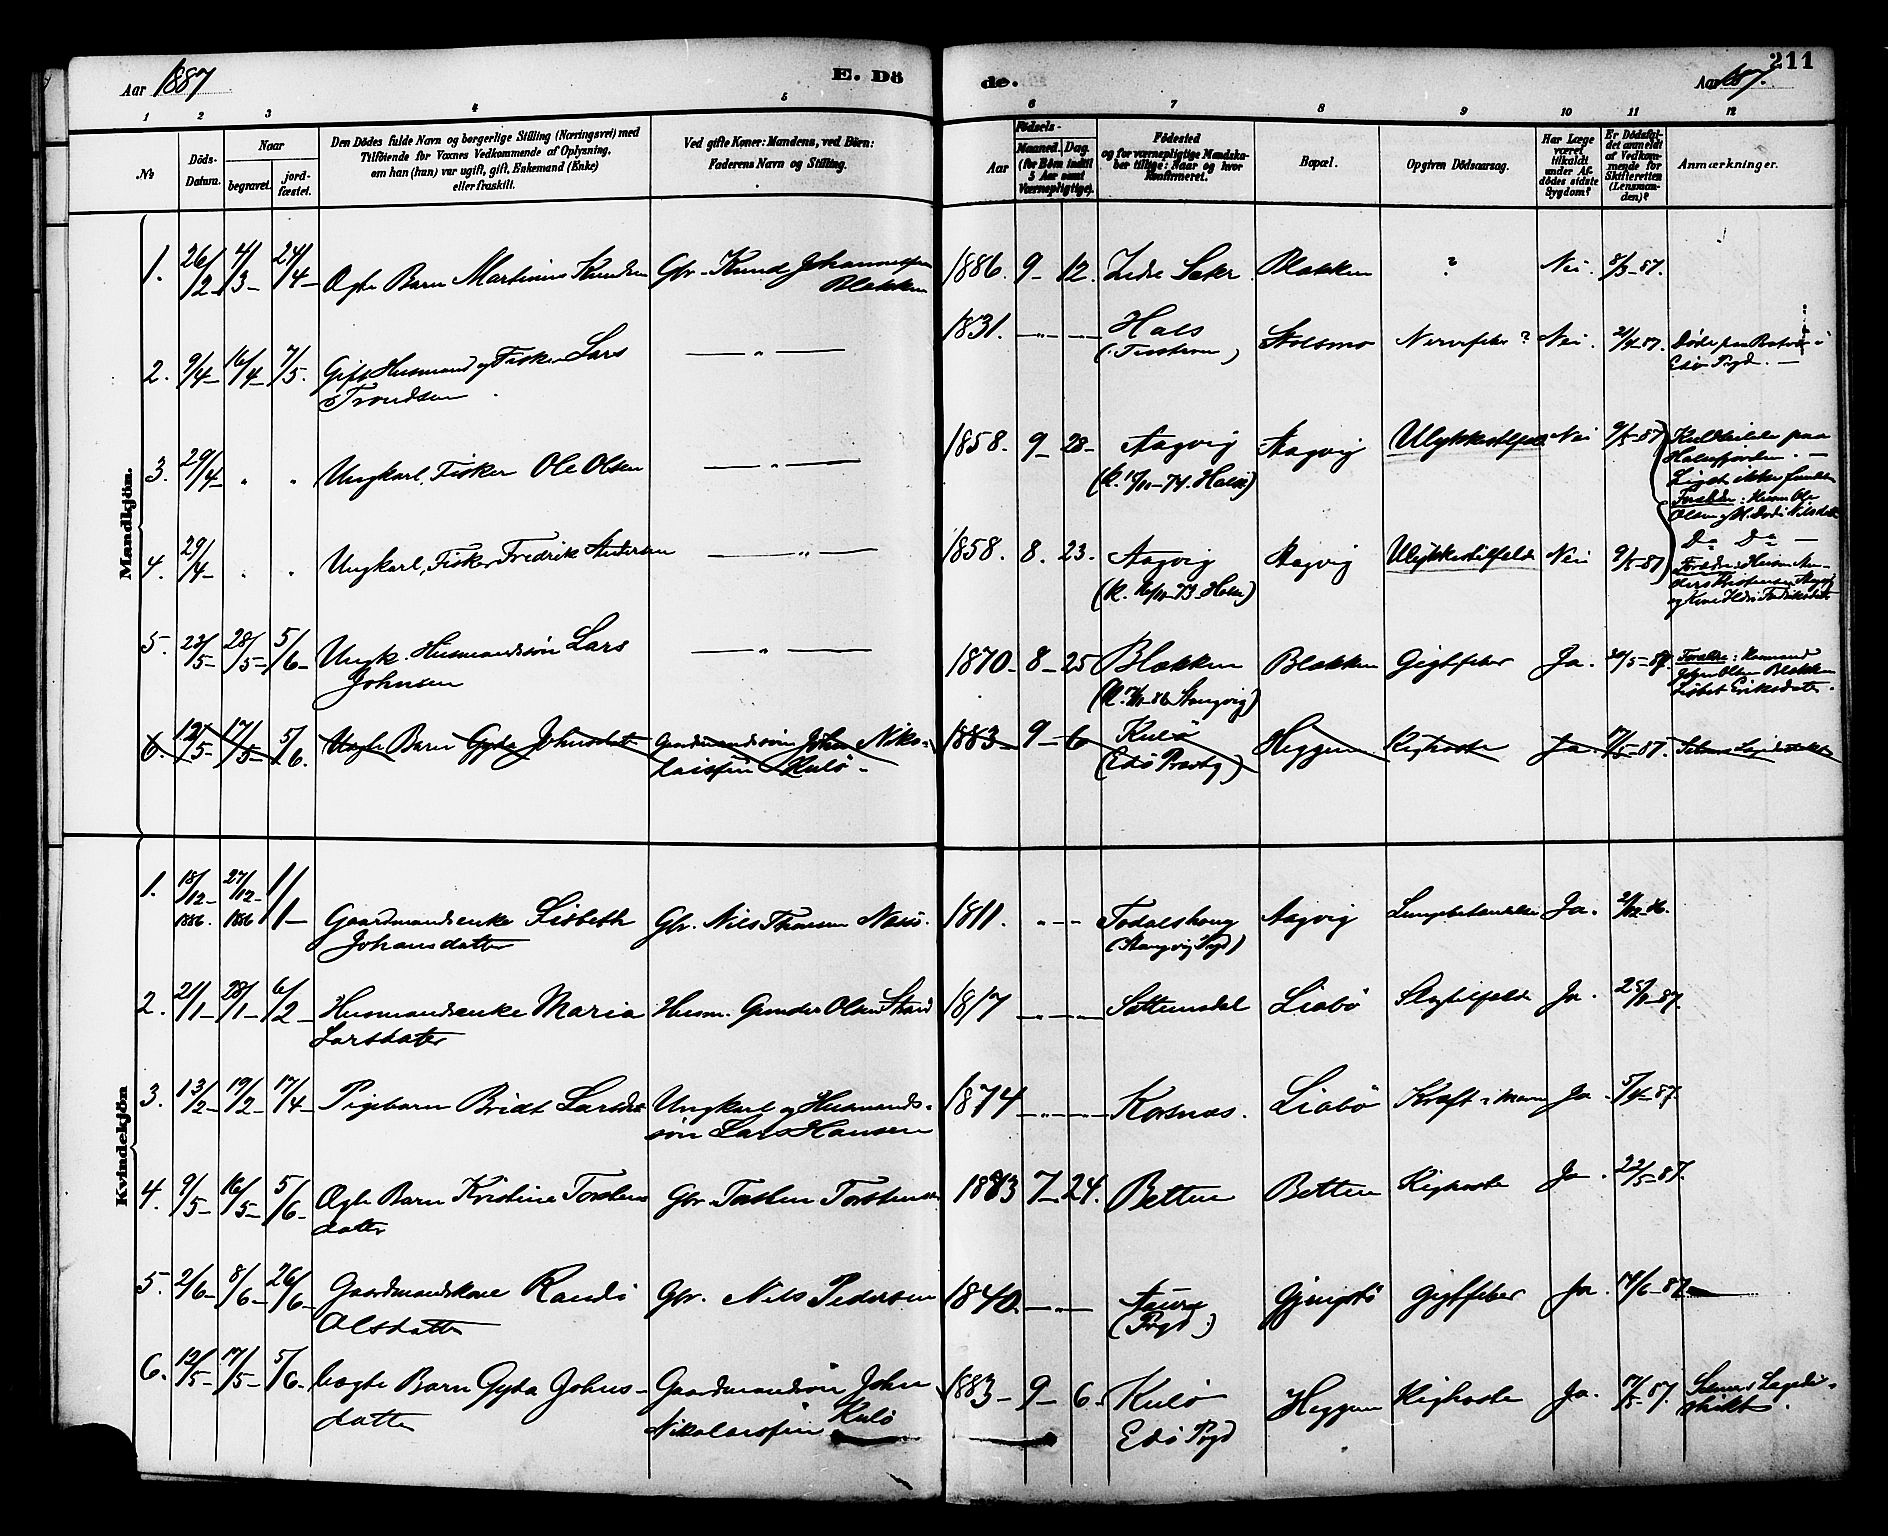 Aar 1887
E. Dö
de.
211
Aar 1887.
1 2 3 4 5 6 7 8 9 10 11 12
№
Döds-Datum.
Naar
begravet.
jord-fæstet.
Den Dödes fulde Navn og borgerlige Stilling (Næringsvei) med
Tilföiende for Voxnes Vedkommende af Oplysning,
om han (hun) var ugift, gift, Enkemand (Enke)
eller fraskilt.
Ved gifte Koner: Mandens, ved Börn:
Faderens Navn og Stilling.
Födsels-
Aar
Maaned. Dag.
(for Börn indtil
5 Aar samt
Værnepligtige).
Födested
og for værnepligtige Mandska-
ber tillige: Naar og hvor
konfirmeret.
Bopæl.
Opgiven Dödsaarsag.
Har Læge
været
tilkaldt
under Af-
dödes sidste
Sygdom?
Er Dödsfal-
det anmeldt
af Vedkom-
mende for
Skifteretten
(Lensman-
den)?
Anmærkninger.
Mandkjön.
1. 26/2 4/3 24/4 Ægte Barn Martinus Knudsen Gbr. Knud Johannessen Blekken 1886. 9 12. Blekken ? Nei.
2. 9/4 16/4 7/5. Gift Husmand og Fisker Lars Trondsen 1831. Hals Nervefeber? Nei. 21/4 87. Döde paa Edö Pgd.
3. 29/4 " " Ungkarl, Fisker Ole Olsen 1858. 9 28 Aagvig Aagvig Ulykkestilfælde Nei 9/5-87 paa Halsefjorden. Liget ikke funden Forældre: Husm. Ole Olsen
4. 29/4 " " Ungkarl, Fisker Fredrik Andersen 1858. 8. 23. Aagvig Aagvig Ulykkestilfælde Nei 9/5-87 Do Do Forældre: Husm.
5. 23/5 28/5 5/6 Ungk. Husmandssön Lars Johnsen 1870 8 25 Blekken Blekken Gigtfeber Ja. Forældre: Husmand John Olsen Blekken
6. 12/5 17/5 5/6. Uægte Barn Gyda Johnsdat Gaardmandssön John Nikolaissen Kulö 1883 9 6 Kulö Heggem Kighoste Ja. 17/5-87.
Kvindekjön
1. 18/12 1886. 27/12 1886 1/1 Gaardmandsenke Lisbeth Johansdatter Gbr. Nils 1811. Todalshaug (Stangvig Pgd) Aagvig Lungebetændelse Ja.
2. 21/1 28/1 6/2 Husmandsenke Maria Larsdatter Husm. Gunder Olsen 1817 Settemsdal Liabö Slagtilfælde Ja. 25/1-87.
3. 13/2 19/2 17/4 Pigebarn Bridt Larsdt Ungkarl og Husmands-sön Lars Hansen 1874 Korsnæs. Liabö Kræft i Ja 5/4-87.
4. 9/5 16/5 5/6 Ægte Barn Kristine Torstensdatter Gbr. Torsten Torstensen 1883 7 24. Betten Betten Kighoste Ja. 22/5-87.
5. 2/6 8/6 26/6 Gaardmandskone Randi Olsdatter Gbr. Nils Pedersen 1840. Aure (Pgd.) Gjengstö Gigtfeber Ja. 14/6-87
6. 12/5 17/5 5/6. Uægte Barn Gyda Johns-datter Gaardmandssön John Nikolaissen Kulö 1883 9 6. Kulö Edö Pgd Heggem Kighoste Ja. 17/5-87.